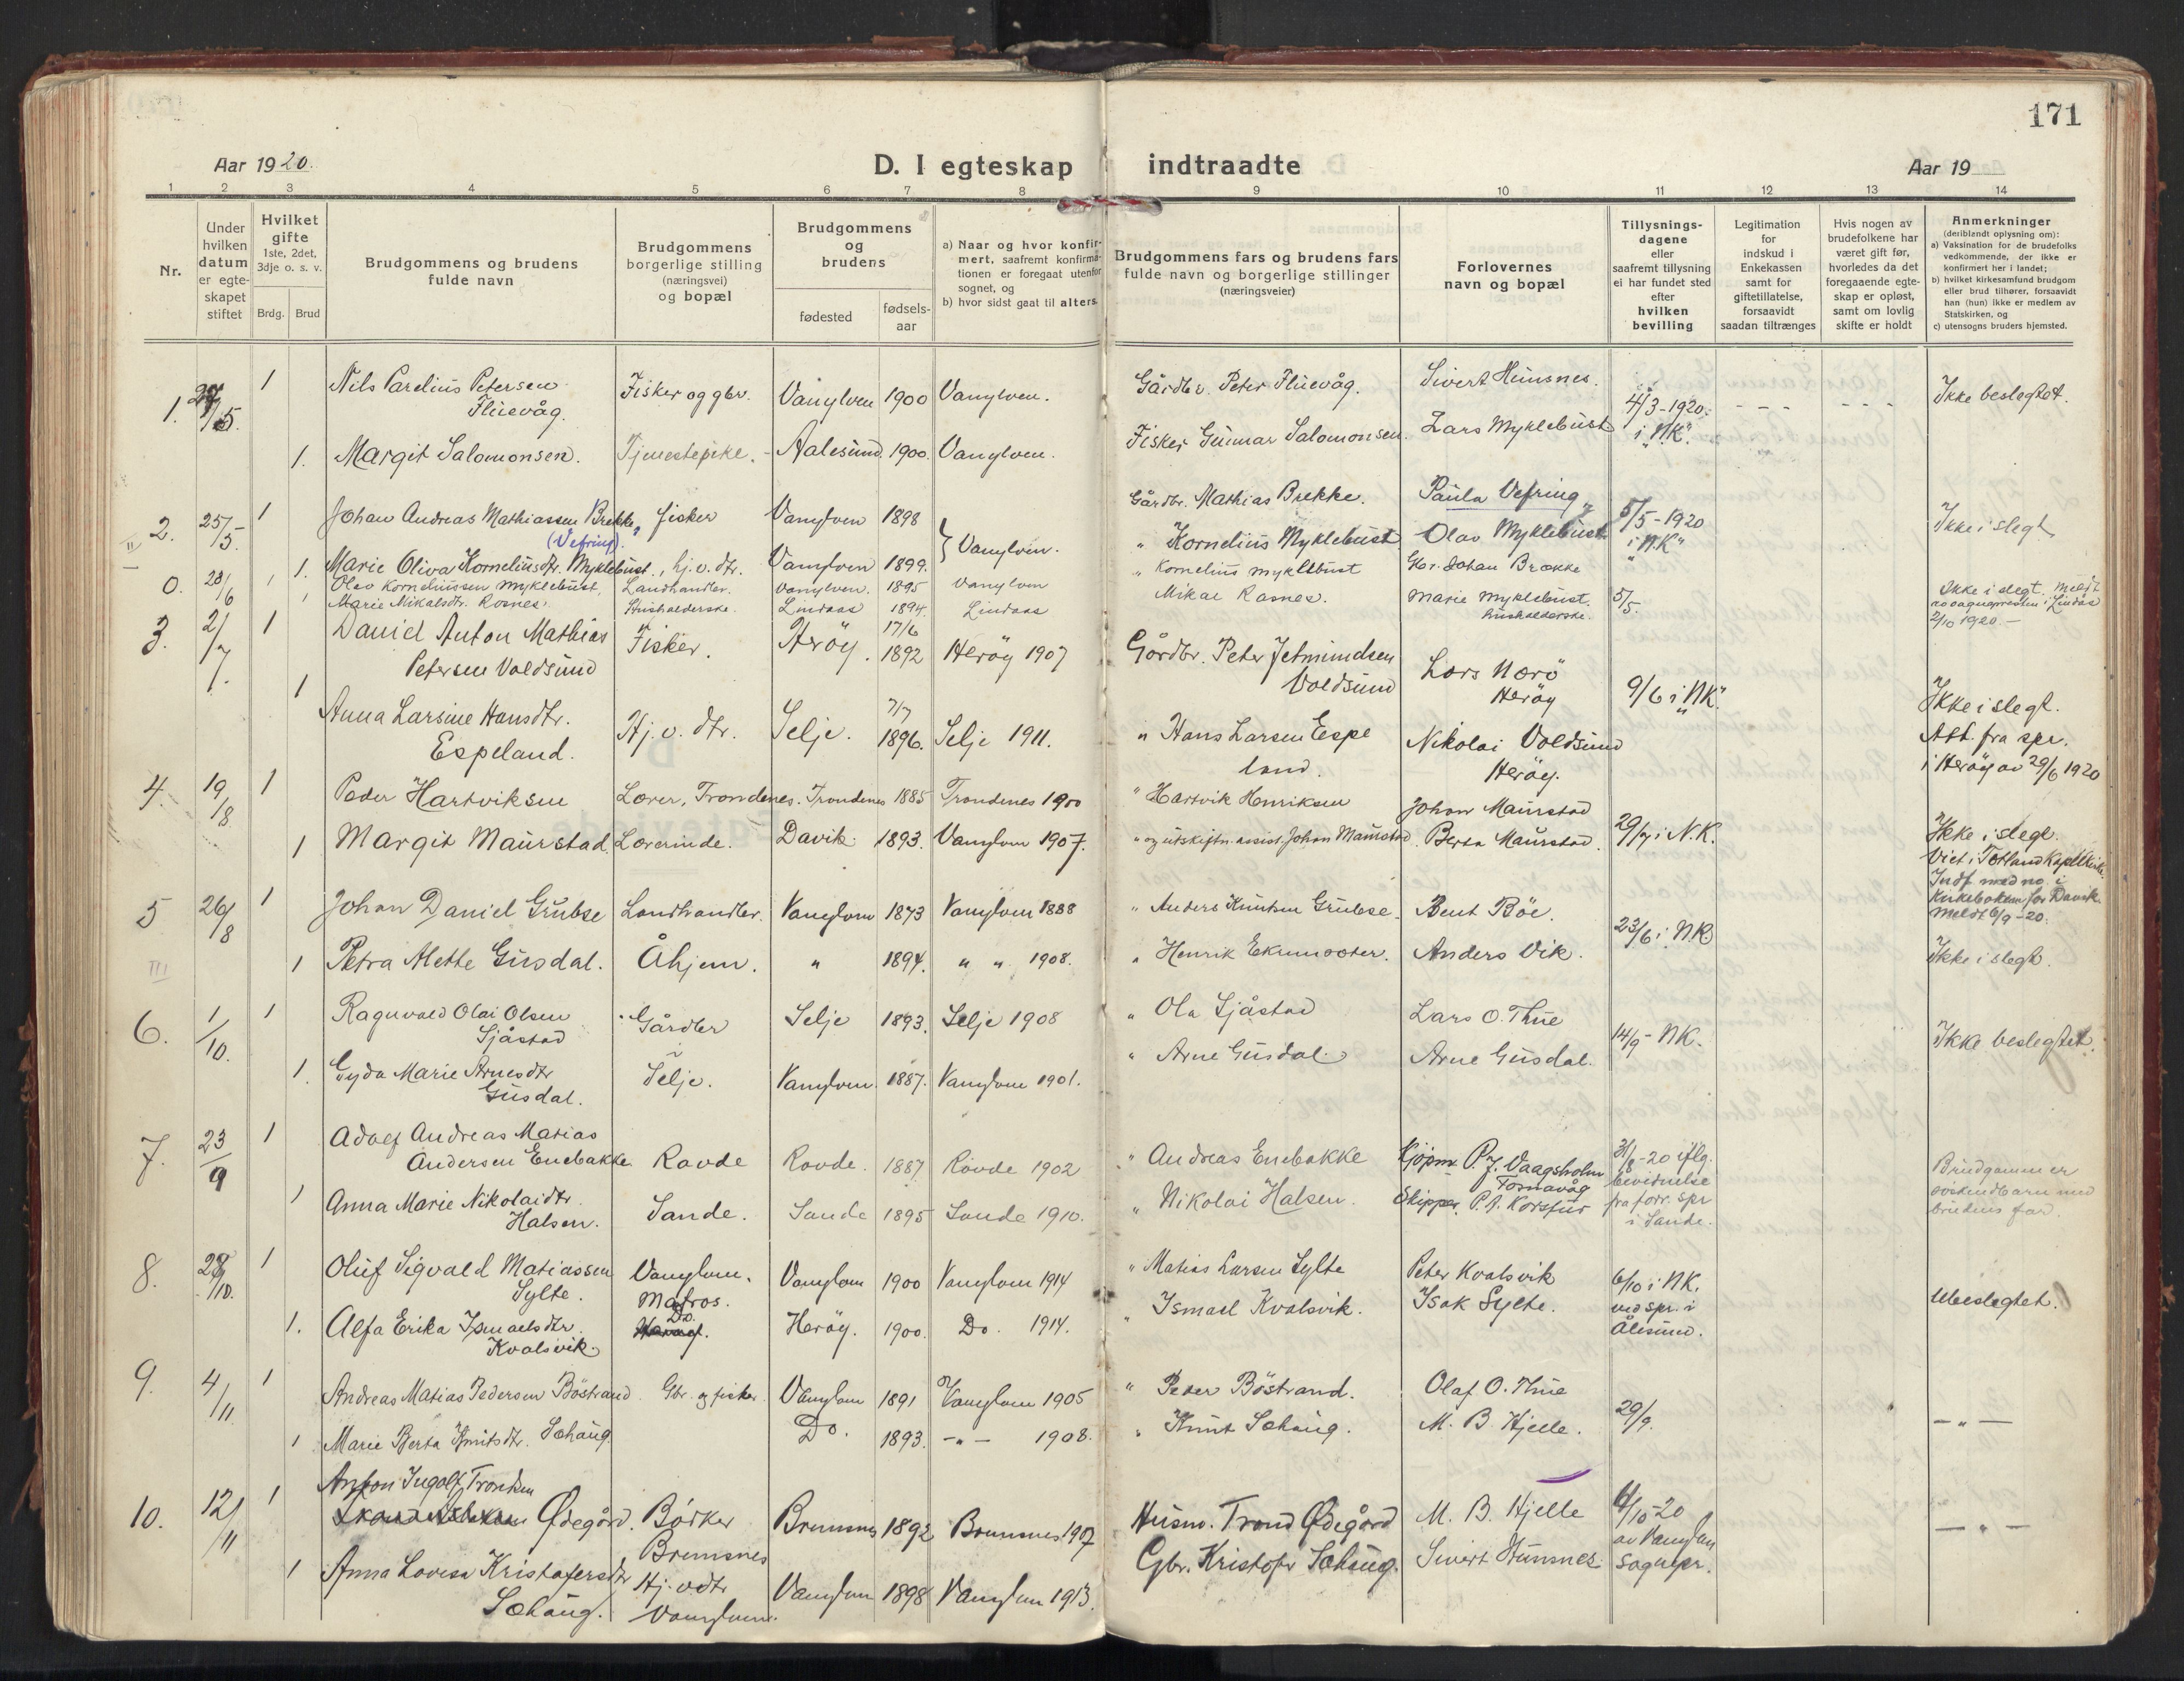 171
Aar 1920.
D. I egteskap indtraadte
Aar 19
1 2 3 4 5 6 7 8 9 10 11 12 13 14
Nr.
Under hvilken datum er egteskapet stiftet
Hvilket gifte 1ste, 2det, 3dje o. s. v.
Brdg. Brud
Brudgommens og brudens fulde navn
Brudgommens borgerlige stilling (næringsvei) og bopæl
Brudgommens og brudens
fødested
fødselsaar
a) Naar og hvor konfirmert, saafremt konfirmationen er foregaat utenfor sognet, og
b) hvor sidst gaat til alters.
Brudgommens fars og brudens fars fulde navn og borgerlige stillinger (næringsveier)
Forlovernes navn og bopæl
Tillysningsdagene eller saafremt tillysning ei har fundet sted efter hvilken bevilling
Legitimation for indskud i Enkekassen samt for giftetillatelse, forsaavidt saadan tiltrænges
Hvis nogen av brudefolkene har været gift før, hvorledes da det foregaaende egteskap er opløst, samt om lovlig skifte er holdt
Anmerkninger (deriblandt oplysning om):
a) Vaksination for de brudefolks vedkommende, der ikke er konfirmert her i landet;
b) hvilket kirkesamfund brudgom eller brud tilhører, forsaavidt han (hun) ikke er medlem av Statskirken, og
c) utensogns bruders hjemsted.
1. 1 Nils Parelius Petersen Fluevåg. Fisker og gbr. Vanylven 1900 Vanylven. Gårdbr. Peter Fluevåg. Sivert Hunsnes. 4/3-1920. i "N.K". - - - - - - Ikke beslegtet.
1. Margit Salomonsen. Tjenestepike. Aalesund. 1900. Vanylven. Fisker Gunnar Salomonsen. Lars Myklebust
2. 25/5. 1 Johan Andreas Mathiassen Brekke, (Vefring). fisker Vanylven 1898 Vanylven. Gårdbr. Mathias Brekke. Paula Vefring 5/5-1920 i "N.K" Ikke i slegt
1. Marie Oliva Korneliusdtr. Myklebust., hj.v. dtr. Vanylven 1899. " Kornelius Myklebust Olav Myklebust
0. 23/6 Olav Korneliussen Myklebust, Landhandler. Vanylven. 1895 Vanylven " Kornelius Myklebust Gbr. Johan Brække
Marie Mikalsdtr. Rosnes. Husholderske. Lindaas 1894. Lindaas Mikal Rosnes. Marie Myklebust. husholderske. 5/5. Ikke i slegt. Meldt sognepresten i Lindås 2/10 1920.-
3. 2/7. 1 Daniel Anton Mathias Petersen Voldsund Fisker. Herøy. 17/6 1892 Herøy 1907 Gårdbr. Peter Jetmundsen Voldsund Lars Nærø Herøy 9/6 i "NK". Ikke i slegt. Att. fra spr. i Herøy av 29/6 1920
1 Anna Larsine Hansdtr. Espeland. Hj. v. dtr. Selje. 7/7 1896. Selje 1911. " Hans Larsen Espeland. Nikolai Voldsund Herøy.
4. 19/8 1 Peder Hartviksen Lærer, Trondenes. Trondenes 1885 Trondenes 1900 " Hartvik Henriksen Johan Maurstad 29/7 i N.K. Ikke i slegt. Viet i Totland Kapelkirke. Indf. med no. i Kirkeboken for Davik. Meldt 6/9-20.
1 Margit Maurstad. Lærerinde. Davik. 1893. Vanylven 1907. " og utskiftn. assist. Johan Maurstad. Berta Maurstad.
5 26/8 1 Johan Daniel Grubse Landhandler. Vanylven 1873 Vanylven 1888 " Anders Knutsen Grubse. Bent Böe. 23/6 i N.K Ikke i slegt.
1 Petra Mette Gusdal. Åhjem. " 1894. " " 1908. " Henrik Anders Vik.
6. 1/10. 1 Ragnvald Olai Olsen Sjåstad Gårdbr Selje 1893. Selje 1908 " Ola Sjåstad Lars O. Thue 14/9 - NK. Ikke beslegtet.
1. Gyda Marie Arnesdtr Gusdal. Selje. Vanylven. 1887. Vanylven 1901. " Arne Gusdal. Arne Gusdal.
7. 23/9 1 Adolf Andreas Matias Andersen Enebakke. Rovde Rovde. 1887 Rovde 1902 " Andreas Enebakke Kjøpm. P. J. Vaagsholm Fosnavåg 31/8-20 iflg. bevidnelse fra forr. spr i Sande. Brudgommen er søskendbarn med brudens far.
1 Anna Marie Nikolaidtr. Halsen. Sande. Sande 1895 Sande 1910. " Nikolai Halsen. Skipper P. A. Korsfur
8. 1 Oluf Sigvald Matiassen Sylte. Vanylven. Matros. Vanylven 1900 Vanylven 1914 " Matias Larsen Sylte Peter Kvalsvik 6/10 i NK. ved spr. i Ålesund. Ubeslegtet.
1. Alfa Erika Ismaelsdtr. Kvalsvik. Do. Herøy. 1900. Do. 1914. " Ismael Kvalsvik. Isak Sylte.
9. 4/11 1 Andreas Matias Pedersen Böstrand. Gbr. og fisker. Vanylven 1891 Vanylven 1905 " Peder Böstrand. Olaf O. Thue 29/9. - " -
1 Marie Berta Knutsdtr. Sæhaug. Do. 1893. - " - 1908. " Knut Sæhaug. M. B. Hjelle.
10. 12/11 1 Anton Ingolf Trondsen Ødegård. Bødker Bremsnes Bremsnes 1892 Bremsnes 1907 Husm. Trond Ødegård M. B. Hjelle /10-20 av Vanylven sognepr. - " -
1 Anna Lovisa Kristofersdtr Sæhaug. Hj. v dtr Vanylven. Vanylven 1898 Vanylven 1913. Gbr. Kristofer Sæhaug. Sivert Hunsnes.